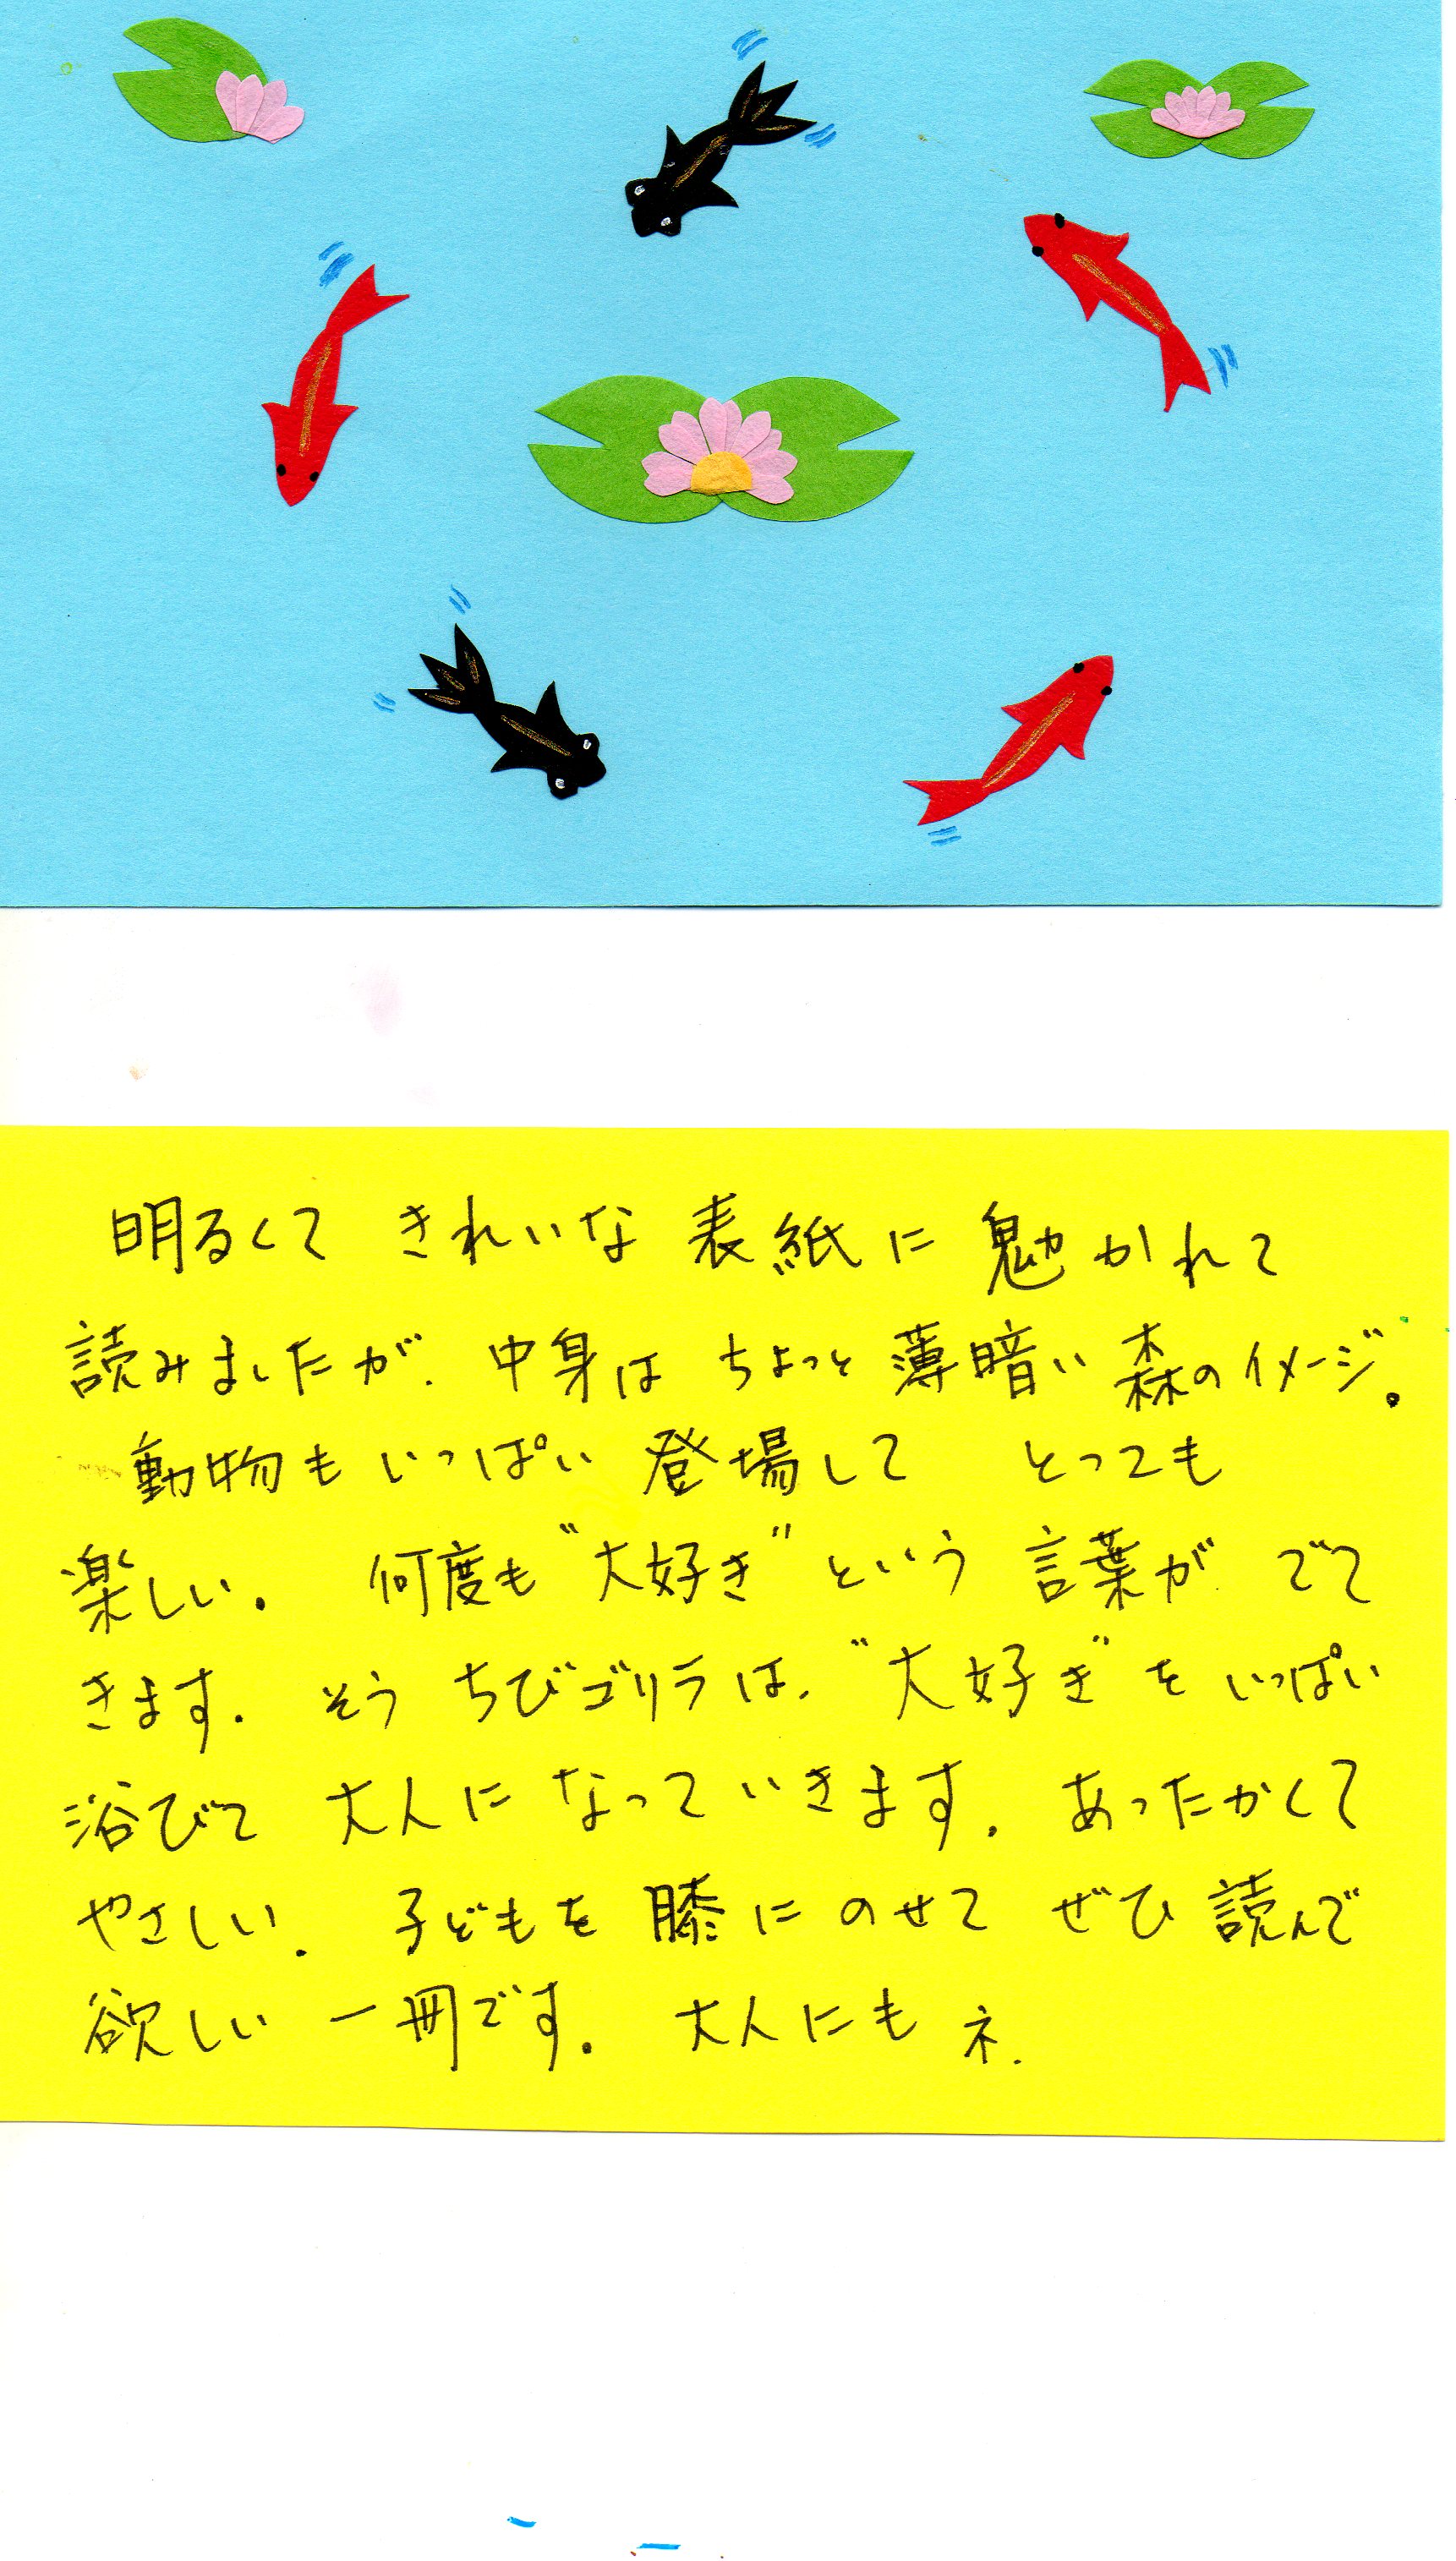 明るくて きれいな 表紙に 魅かれて
読みましたが、中身は ちょっと 薄暗い 森のイメージ。
動物も いっぱい 登場して とっても
楽しい。 何度も“大好き”という 言葉が でて
きます。 そう ちびゴリラは、“大好き”を いっぱい
浴びて 大人に なって いきます。 あったかくて
やさしい。 子どもを 膝に のせて ぜひ 読んで
欲しい 一冊です。 大人にも ネ。